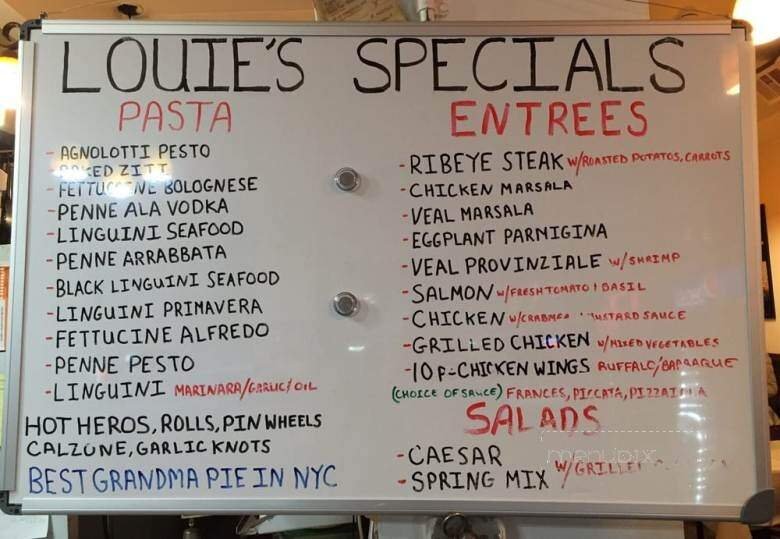 LOUIE'S SPECIALS
PASTA
- AGNOLOTTI PESTO
BAKED ZITI
- FETTUCCINE BOLOGNESE
- PENNE ALA VODKA
- LINGUINI SEAFOOD
- PENNE ARRABBATA
- BLACK LINGUINI SEAFOOD
- LINGUINI PRIMAVERA
- FETTUCINE ALFREDO
- PENNE PESTO
- LINGUINI MARINARA/GARLIC/OIL
HOT HEROS, ROLLS, PIN WHEELS
CALZONE, GARLIC KNOTS
BEST GRANDMA PIE IN NYC
ENTREES
- RIBEYE STEAK W/ROASTED POTATOS, CARROTS
- CHICKEN MARSALA
- VEAL MARSALA
- EGGPLANT PARMIGINA
- VEAL PROVINZIALE W/SHRIMP
- SALMON W/FRESH TOMATO BASIL
- CHICKEN MUSTARD SAUCE
- GRILLED CHICKEN W/MIXED VEGETABLES
- 10 P-CHICKEN WINGS BUFFALO/BARBAQUE
(CHOICE OF SAUCE) FRANCES, PICCATA,
SALADS
- CAESAR
- SPRING MIX
menupix